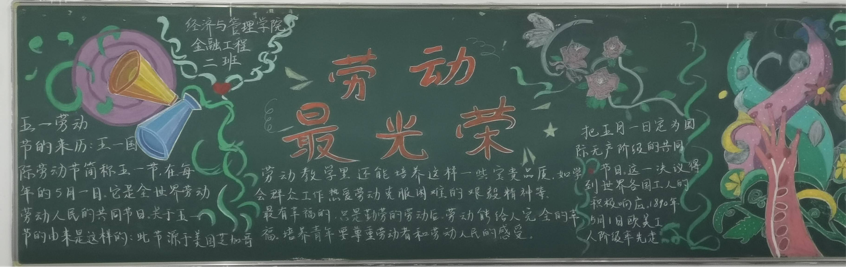 经济与管理学院
金融工程
二班
劳动
最光荣
五一劳动
节的来历:五一国
际劳动节简称五一节,在每
年的5月一日.它是全世界劳动
劳动人民的共同节日.关于五一
节的由来是这样的:此节源于美国芝加哥
劳动教学里还能培养这样一些宝贵品质.如学
会群众工作热爱劳动克服困难的艰毅精神等
最有幸福的.只是勤劳的劳动后.劳动能给人完全的幸
福.培养青年要尊重劳动者和劳动人民的感受.
把五月一日定为国
际无产阶级的共同
节日.这一决议得
到世界各国工人的
积极响应.1890年
5月1日欧美工
人阶级率先走